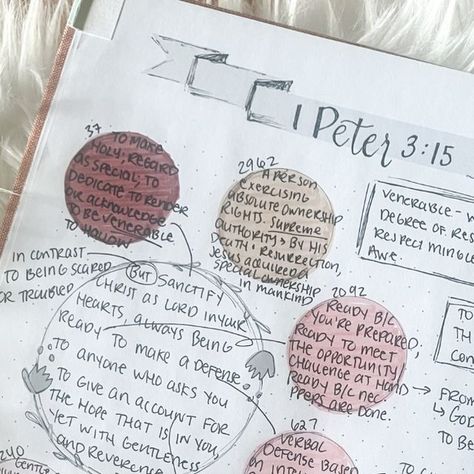 1 Peter 3:15
37
TO MAKE
HOLY; REGARD
AS SPECIAL; TO
DEDICATE TO RENDER
OR ACKNOWLEDGE
TO BE VENERABLE
TO HALLOW
2962
A PERSON
EXERCISING
ABSOLUTE OWNERSHIP
RIGHTS. SUPREME
AUTHORITY > BY HIS
DEATH + RESURRECTION,
JESUS ACQUIRED A
SPECIAL OWNERSHIP
IN MANKIND
VENERABLE -
DEGREE OF RES
RESPECT MINGLE
AWE.
IN CONTRAST
TO BEING SCARED
OR TROUBLED
BUT SANCTIFY
CHRIST AS LORD IN YOUR
HEARTS, ALWAYS BEING
READY TO MAKE A DEFENSE
TO ANYONE WHO ASKS YOU
TO GIVE AN ACCOUNT FOR
THE HOPE THAT IS IN YOU,
YET WITH GENTLENESS
AND REVERENCE
2092
READY B/C
YOU'RE PREPARED.
READY TO MEET
THE OPPORTUNITY
CHALLENGE AT HAND
READY B/C NEC
PPERS ARE DONE.
TO
TH
CON
FROM
GOD
TO BE
627
VERBAL
DEFENSE BASED
240